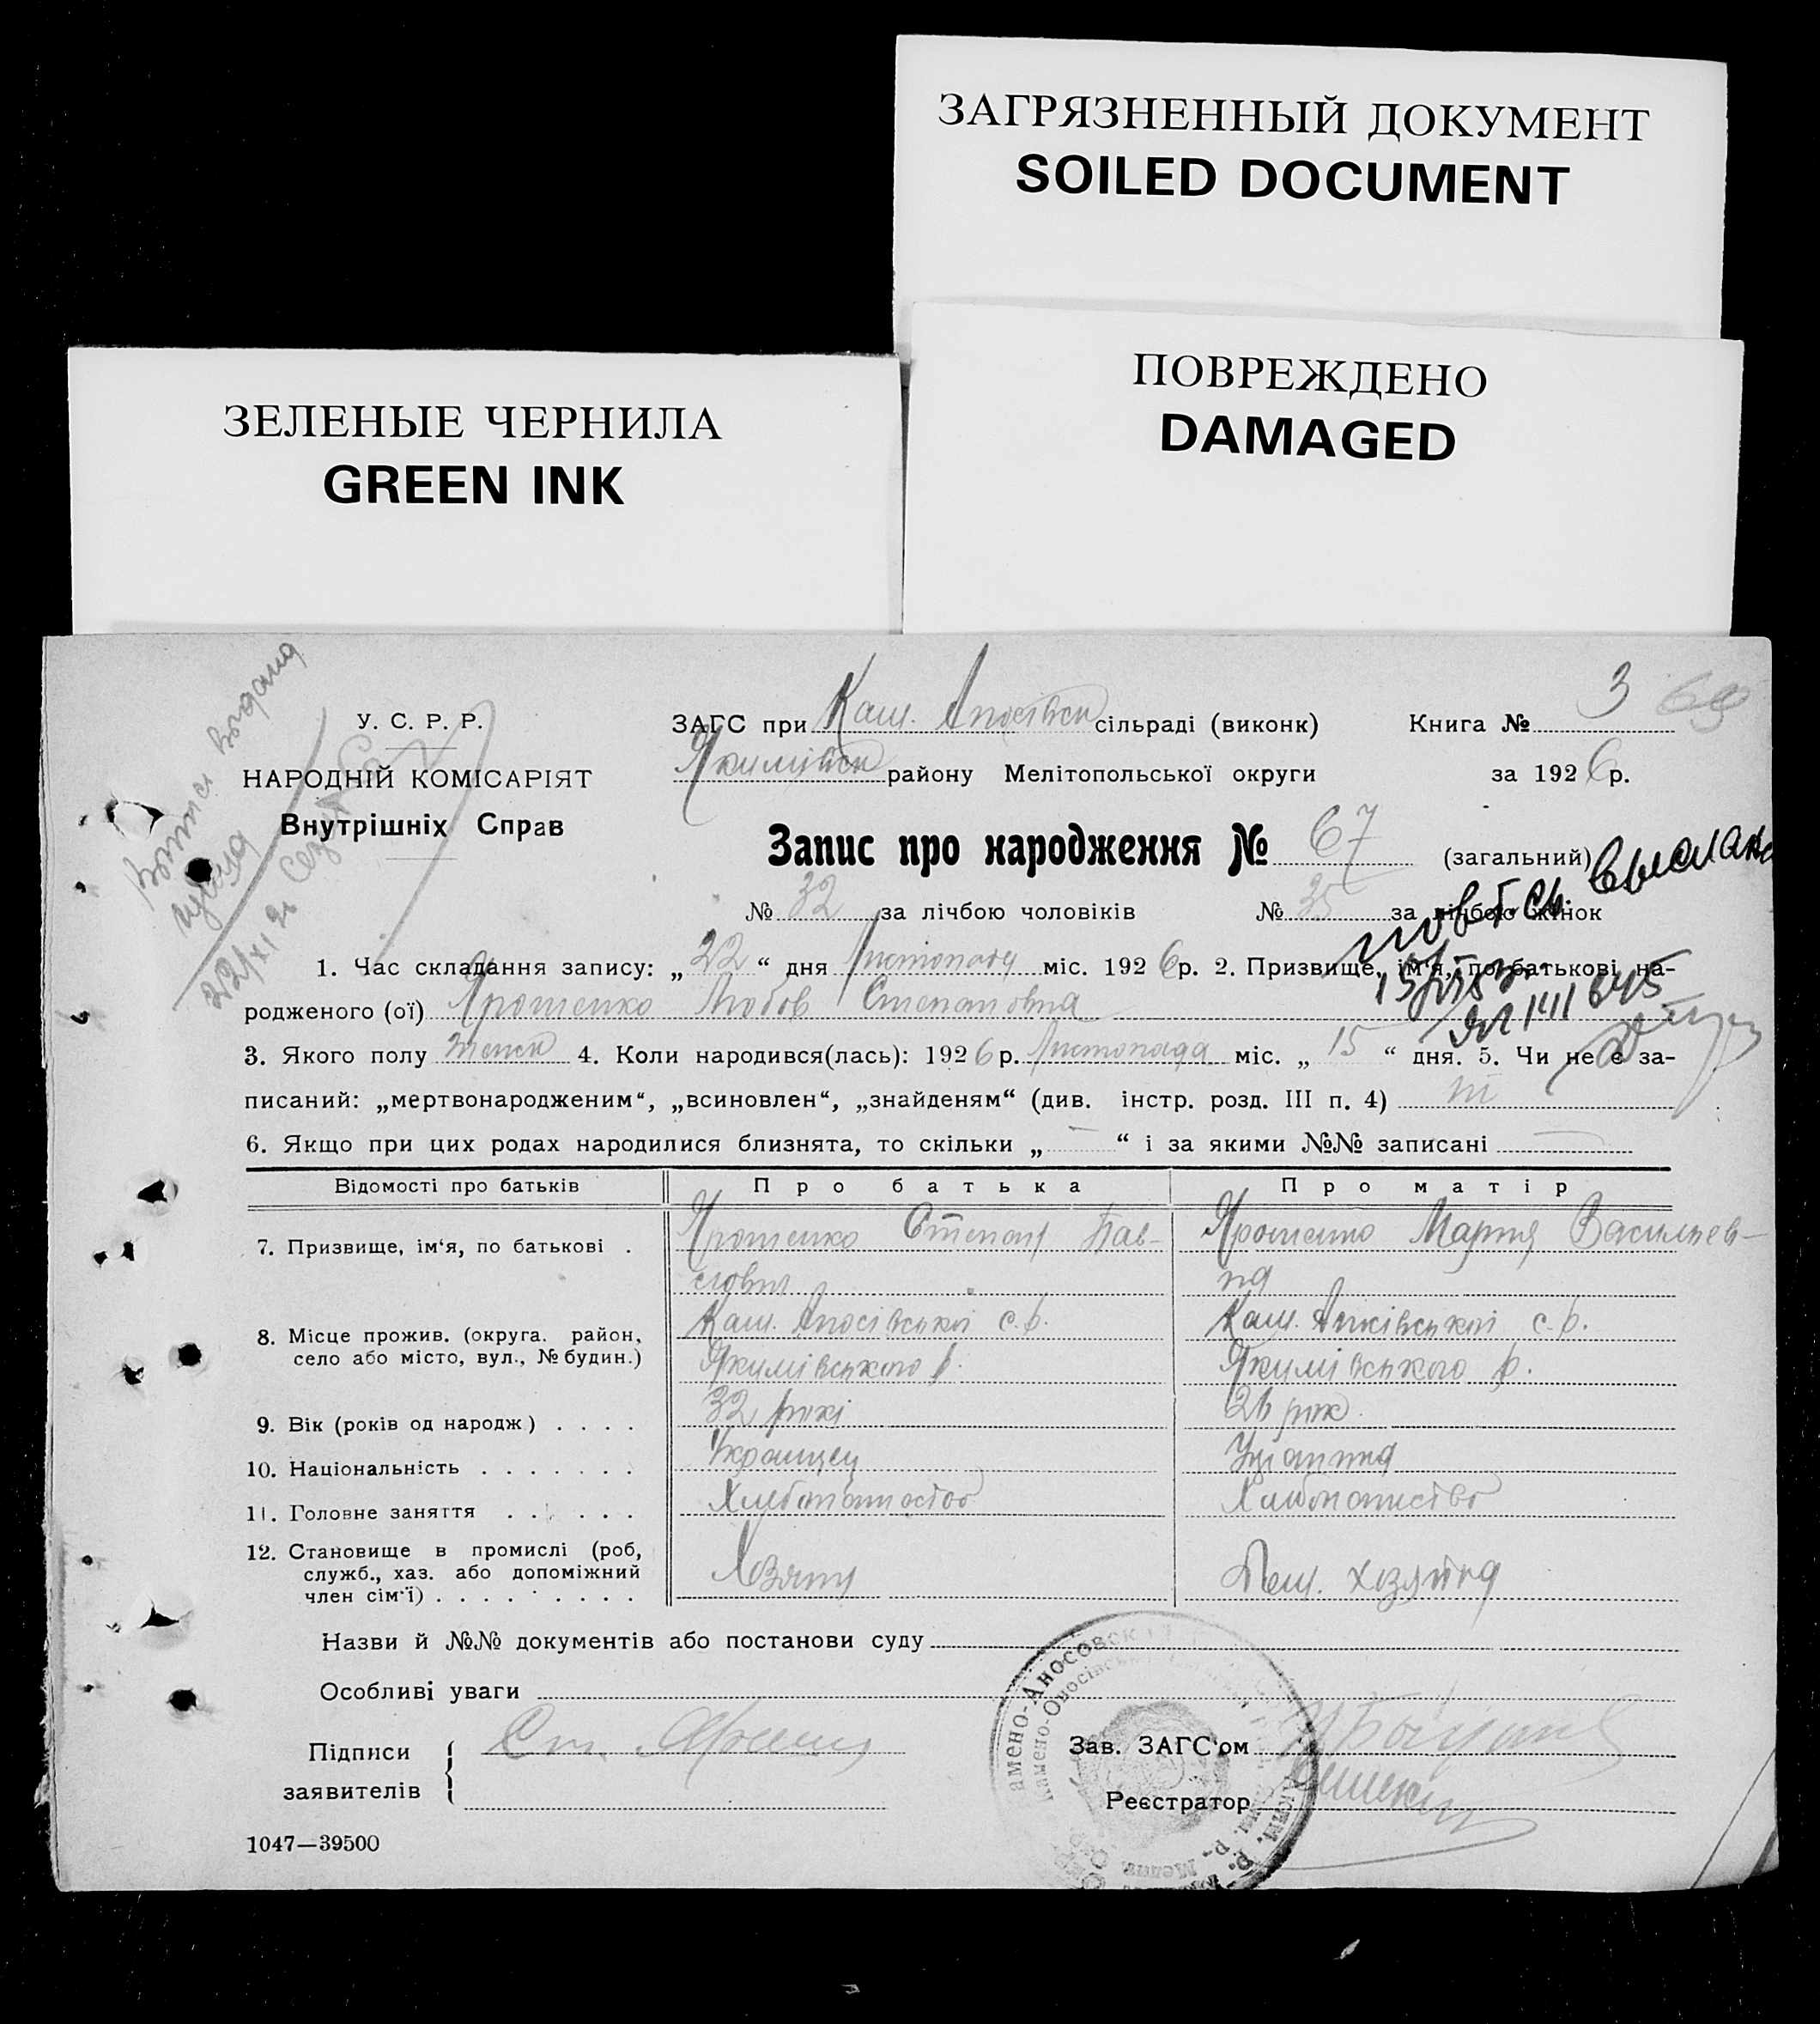 ЗАГРЯЗНЕННЫЙ ДОКУМЕНТ
SOILED DOCUMENT
ЗЕЛЕНЫЕ ЧЕРНИЛА
GREEN INK
ПОВРЕЖДЕНО
DAMAGED
У. С. Р. Р.
НАРОДНІЙ КОМІСАРІЯТ
Внутрішніх Справ
ЗАГС при сільраді (виконк) Книга № 3 69
району Мелітопольської округи за 1926р.
Запис про народження № 67 (загальний)
№ 32 за лічбою чоловіків № 35 за лічбою жінок
повт. св. выслано
1. Час складання запису: „22“ дня Листопада міс. 1926р. 2. Призвище, ім'я, по батькові на-
родженого (ої) Ярошенко Любов Степановна
3. Якого полу женск 4. Коли народився(лась): 1926р. Листопада міс. „15“ дня. 5. Чи не є за-
писаний: „мертвонародженим“, „всиновлен“, „знайденям“ (див. інстр. розд. III п. 4)
6. Якщо при цих родах народилися близнята, то скільки „—“ і за якими №№ записані —
Відомості про батьків Про батька Про матір
7. Призвище, ім'я, по батькові . Ярошенко Степан Пав- Ярошенко Мария Васильев-
на
8. Місце прожив. (округа. район, село або місто, вул., № будин.) Кам. Аносівської с.р. Кам. Аносівської с.р.
Якимівського р. Якимівського р.
9. Вік (років од народж) . . . . 32 рокі 26 рок
10. Національність . . . . . . . Украинец
11. Головне заняття . . . . . . Хлебопашество Хлібопашество
12. Становище в промислі (роб, служб., хаз. або допоміжний член сім'ї) . . . . . . . . . Хозяин Пом. хозяина
Назви й №№ документів або постанови суду
Особливі уваги
Підписи заявителів
Зав. ЗАГС'ом
Реєстратор
амено-Аносовск
1047—39500